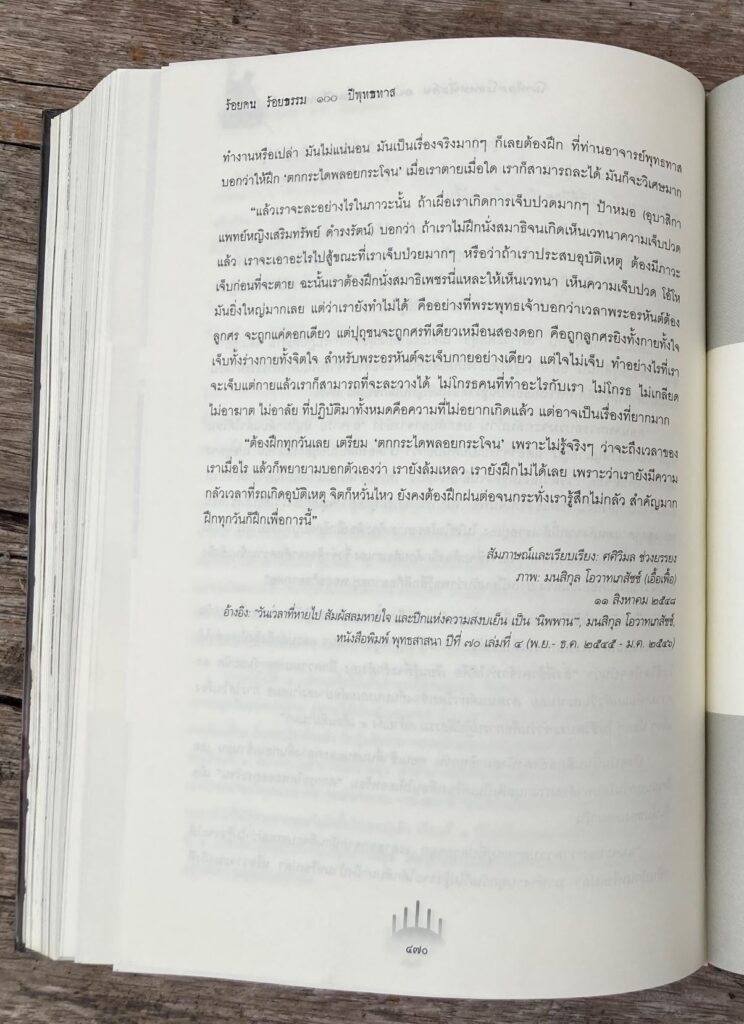 ร้อยคน ร้อยธรรม ๑๐๐ ปีพุทธทาส
ทำงานหรือเปล่า มันไม่แน่นอน มันเป็นเรื่องจริงมากๆ ก็เลยต้องฝึก ที่ท่านอาจารย์พุทธทาส
บอกว่าให้ฝึก ‘ตกกระไดพลอยกระโจน’ เมื่อเราตายเมื่อใด เราก็สามารถละได้ มันก็จะวิเศษมาก
“แล้วเราจะละอย่างไรในภาวะนั้น ถ้าเผื่อเราเกิดการเจ็บปวดมากๆ ป้าหมอ (อุบาสิกา
แพทย์หญิงเสริมทรัพย์ ดำรงรัตน์) บอกว่า ถ้าเราไม่ฝึกนั่งสมาธิจนเกิดเห็นเวทนาความเจ็บปวด
แล้ว เราจะเอาอะไรไปสู้ขณะที่เราเจ็บป่วยมากๆ หรือว่าถ้าเราประสบอุบัติเหตุ ต้องมีภาวะ
เจ็บก่อนที่จะตาย ฉะนั้นเราต้องฝึกนั่งสมาธิเพชรนี่แหละให้เห็นเวทนา เห็นความเจ็บปวด โอ้โห
มันยิ่งใหญ่มากเลย แต่ว่าเรายังทำไม่ได้ คืออย่างที่พระพุทธเจ้าบอกว่าเวลาพระอรหันต์ต้อง
ลูกศร จะถูกแค่ดอกเดียว แต่ปุถุชนจะถูกศรทีเดียวเหมือนสองดอก คือถูกลูกศรยิงทั้งกายทั้งใจ
เจ็บทั้งร่างกายทั้งจิตใจ สำหรับพระอรหันต์จะเจ็บกายอย่างเดียว แต่ใจไม่เจ็บ ทำอย่างไรที่เรา
จะเจ็บแต่กายแล้วเราก็สามารถที่จะละวางได้ ไม่โกรธคนที่ทำอะไรกับเรา ไม่โกรธ ไม่เกลียด
ไม่อาฆาต ไม่อาลัย ที่ปฏิบัติมาทั้งหมดคือความที่ไม่อยากเกิดแล้ว แต่อาจเป็นเรื่องที่ยากมาก
“ต้องฝึกทุกวันเลย เตรียม ‘ตกกระไดพลอยกระโจน’ เพราะไม่รู้จริงๆ ว่าจะถึงเวลาของ
เราเมื่อไร แล้วก็พยายามบอกตัวเองว่า เรายังล้มเหลว เรายังฝึกไม่ได้เลย เพราะว่าเรายังมีความ
กลัวเวลาที่รถเกิดอุบัติเหตุ จิตก็หวั่นไหว ยังคงต้องฝึกฝนต่อจนกระทั่งเรารู้สึกไม่กลัว สำคัญมาก
ฝึกทุกวันก็ฝึกเพื่อการนี้”
สัมภาษณ์และเรียบเรียง: ศศิวิมล ช่วงยรรยง
ภาพ: มนสิกุล โอวาทเภสัชช์ (เอื้อเฟื้อ)
๑๑ สิงหาคม ๒๕๔๘
อ้างอิง: “วันเวลาที่หายไป สัมผัสลมหายใจ และปีกแห่งความสงบเย็น เป็น ‘นิพพาน’”, มนสิกุล โอวาทเภสัชช์,
หนังสือพิมพ์ พุทธสาสนา ปีที่ ๗๐ เล่มที่ ๔ (พ.ย.- ธ.ค. ๒๕๔๕ - ม.ค. ๒๕๔๖)
๔๗๐